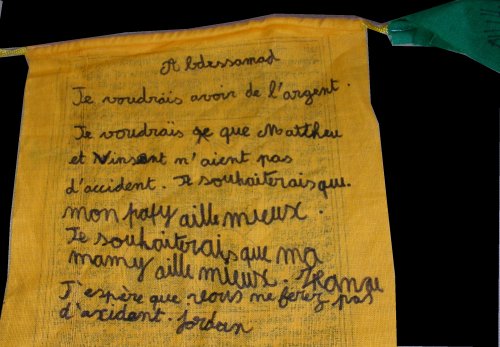 Abdessamad
Je voudrais avoir de l'argent.
Je voudrais que Mattheu
et Vinsent n'aient pas
d'accident. Je souhaiterais que
mon papy aille mieux.
Je souhaiterais que ma
mamy aille mieux.
J'espère que vous ne ferez pas
d'axident. Jordan